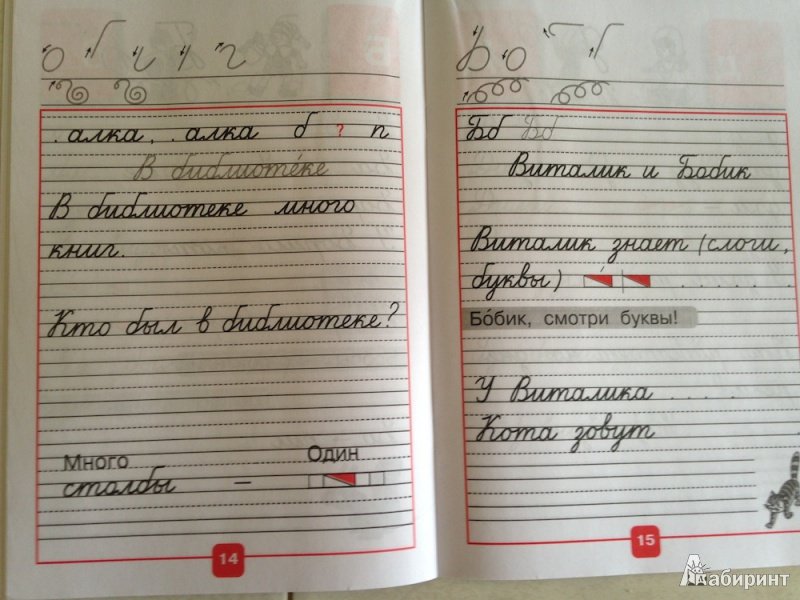 . алка, . алка б ? п
В библиоте́ке
В библиотеке много
книг.
Кто был в библиотеке?
Много Один
столбы –
14
Бб Бб
Виталик и Бобик
Виталик знает (слоги,
буквы) . . . . . .
Бо́бик, смотри буквы!
У Виталика . . . . .
Кота зовут
15
Лабиринт